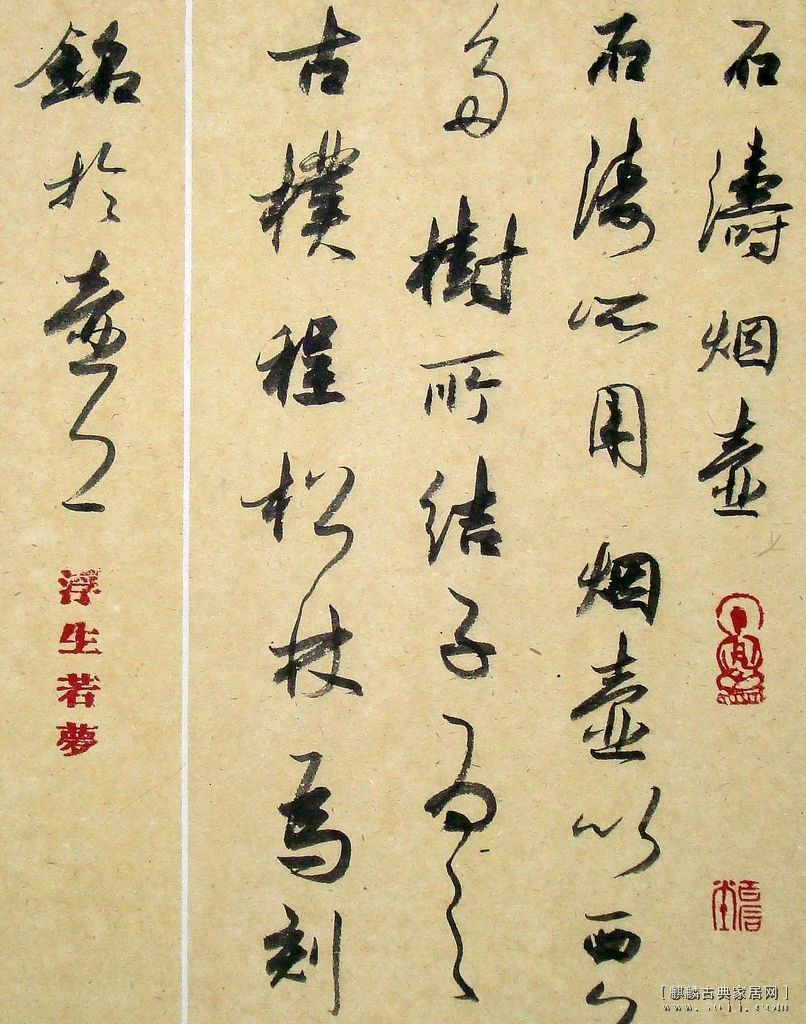 石濤烟壺
石濤所用烟壺以西
多樹所結子為之
古樸程松杖為刻
銘於壺上
浮生若夢
[麒麟古典家居网]